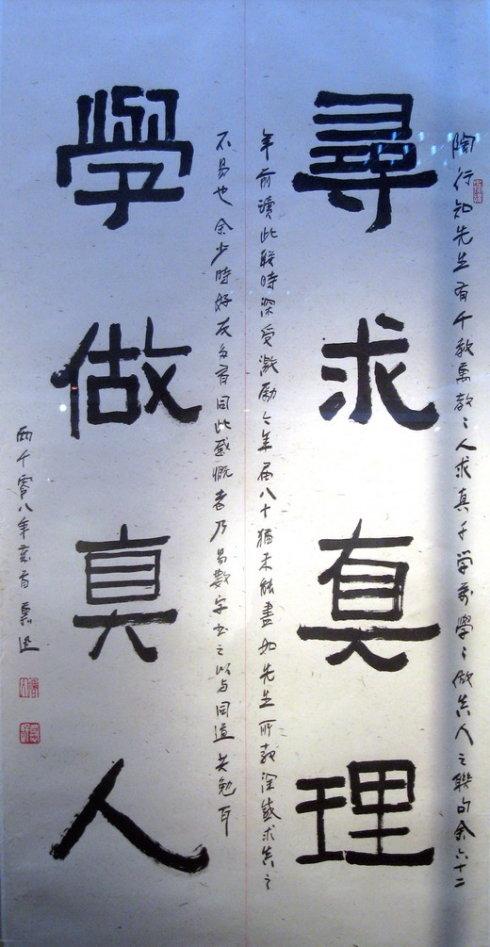 陶行知先生有千教萬教々人求真千学萬學々做真人之聯句余六十二
尋求真理
年前讀此聯時深受激勵今年届八十猶未能盡如先生所教深感求真之
不易也余少時好友多有同此感慨者乃易數字書之以与同道共勉耳
學做真人
两千零八年